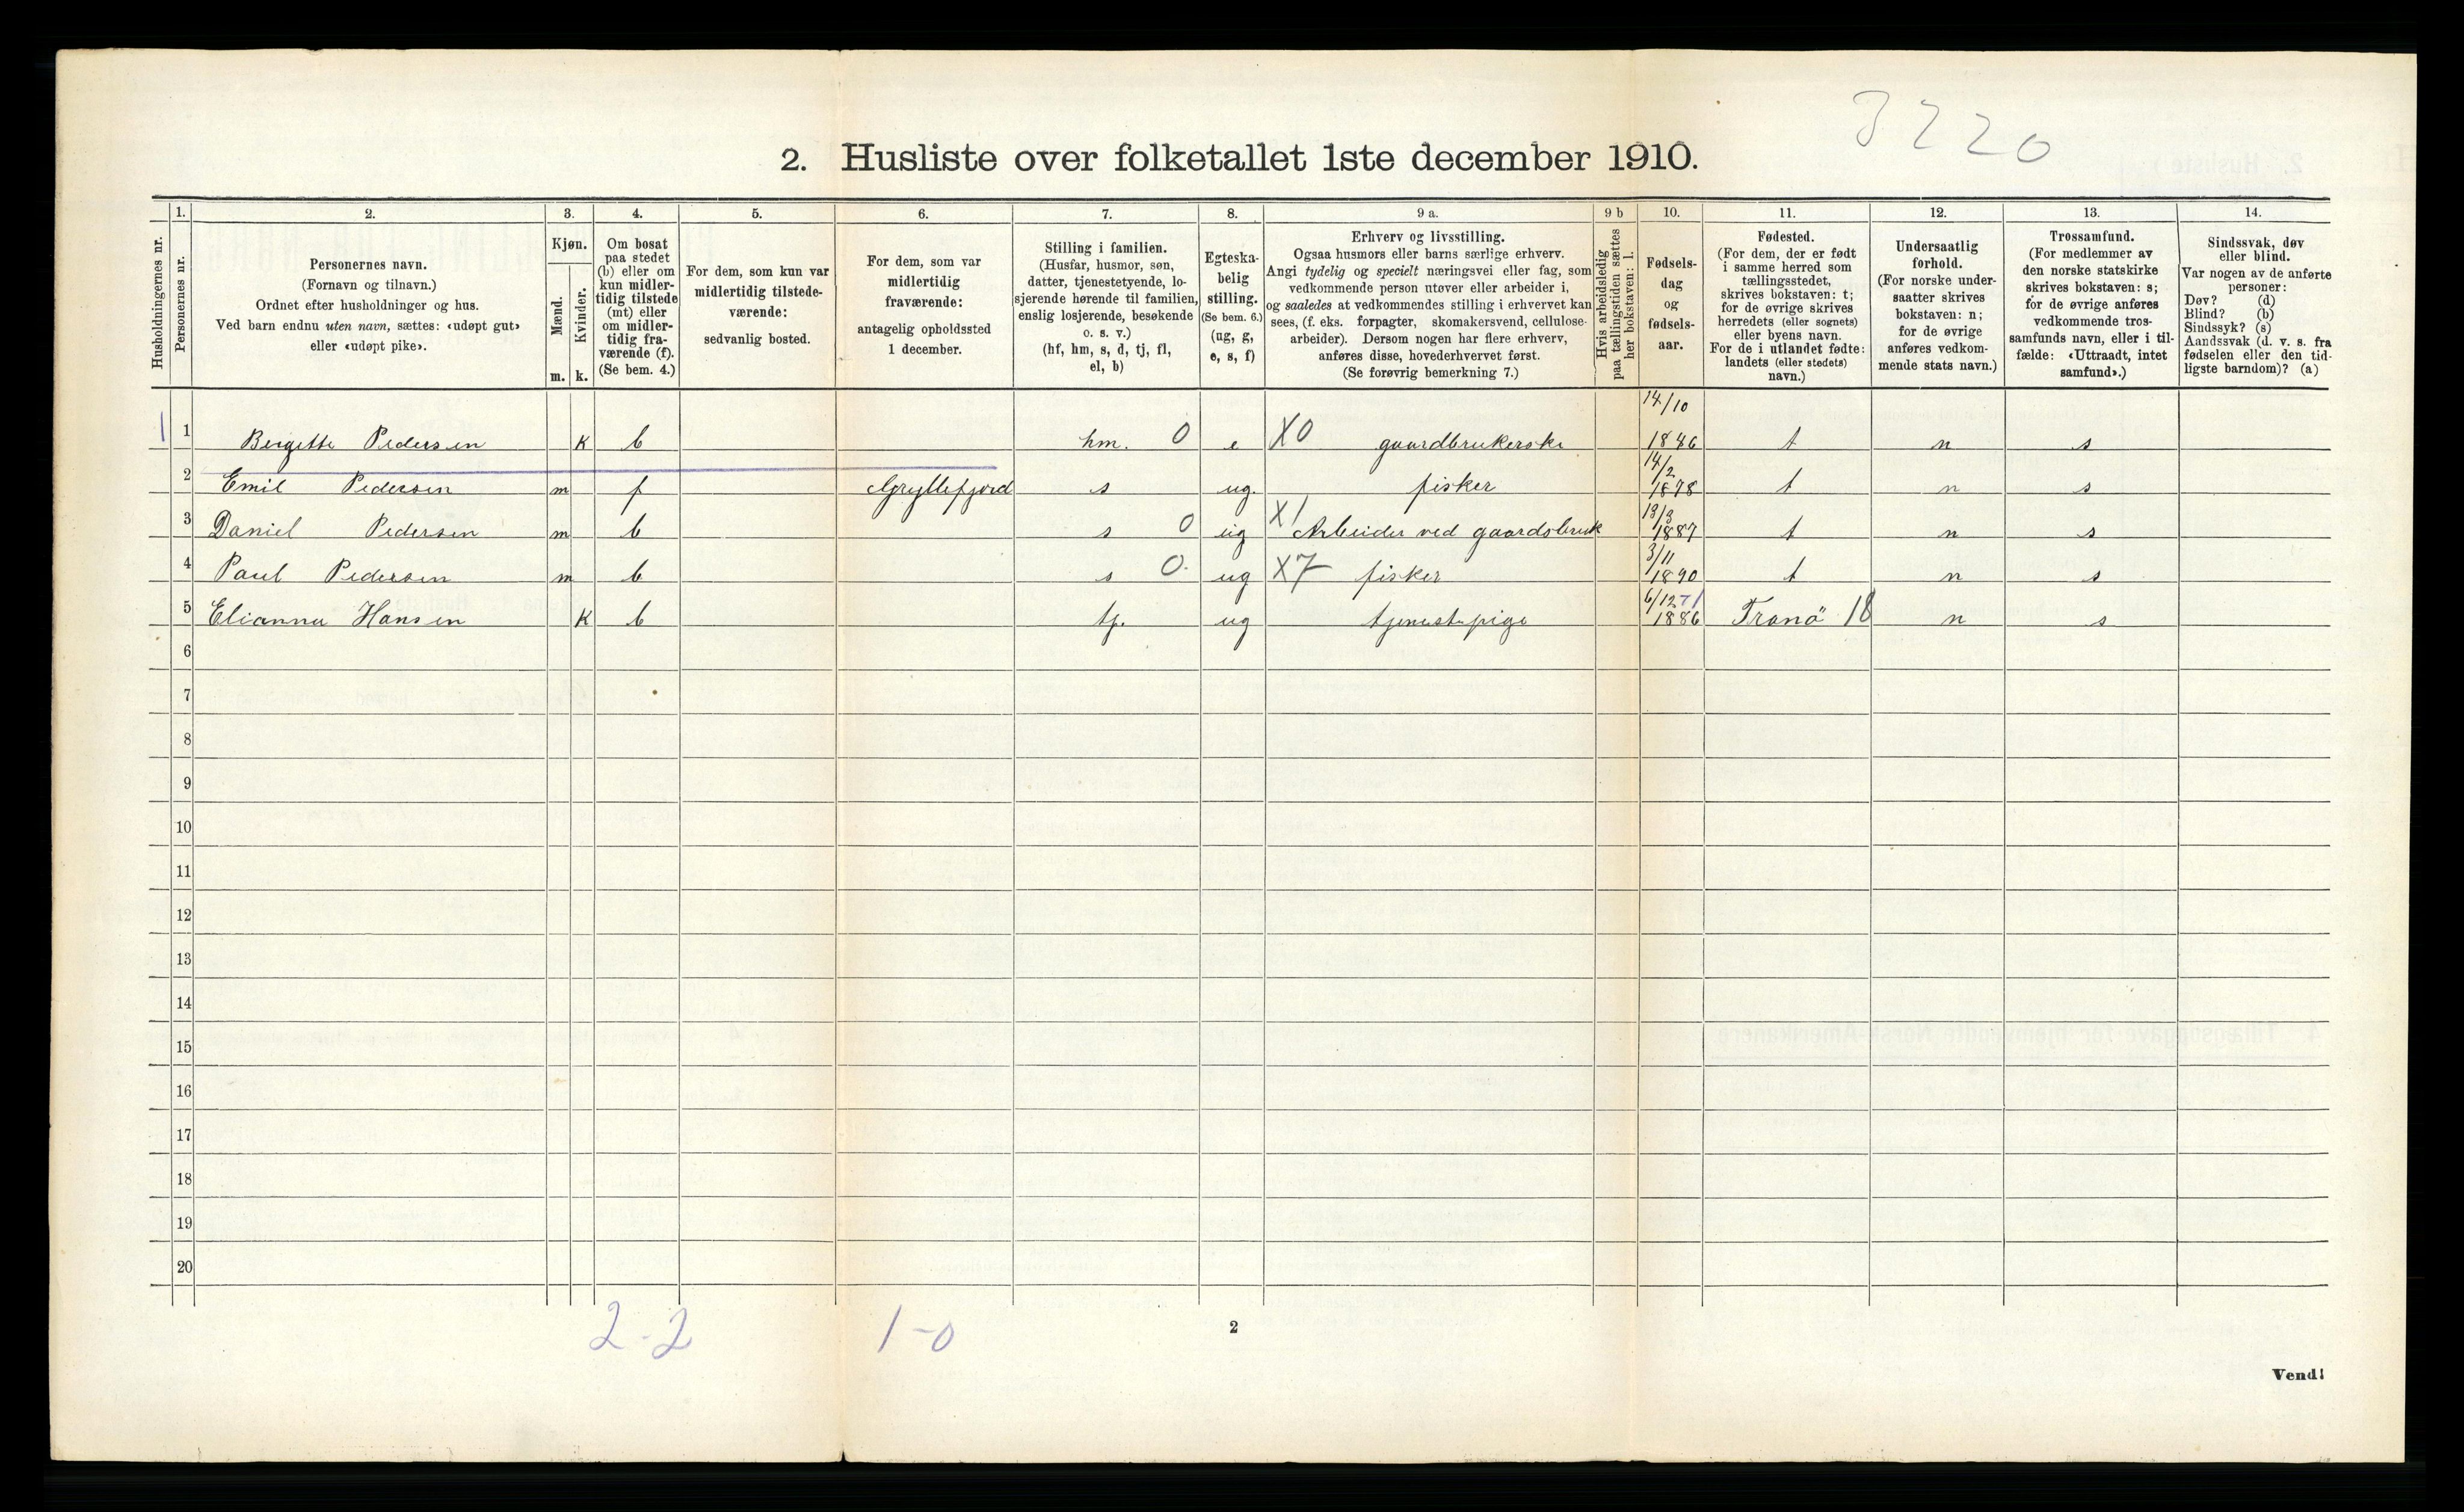 3220
2. Husliste over folketallet 1ste december 1910.
Husholdningernes nr.
1.
Personernes nr.
2.
Personernes navn.
(Fornavn og tilnavn.)
Ordnet efter husholdninger og hus.
Ved barn endnu uten navn, sættes: «udøpt gut»
eller «udøpt pike».
3.
Kjøn.
Mænd.
Kvinder.
m. k.
4.
Om bosat
paa stedet
(b) eller om
kun midler-
tidig tilstede
(mt) eller
om midler-
tidig fra-
værende (f).
(Se bem. 4.)
5.
For dem, som kun var
midlertidig tilstede-
værende:
sedvanlig bosted.
6.
For dem, som var
midlertidig
fraværende:
antagelig opholdssted
1 december.
7.
Stilling i familien.
(Husfar, husmor, søn,
datter, tjenestetyende, lo-
sjerende hørende til familien,
enslig losjerende, besøkende
o. s. v.)
(hf, hm, s, d, tj, fl,
el, b)
8.
Egteska-
belig
stilling.
(Se bem. 6.)
(ug, g,
e, s, f)
9 a.
Erhverv og livsstilling.
Ogsaa husmors eller barns særlige erhverv.
Angi tydelig og specielt næringsvei eller fag, som
vedkommende person utøver eller arbeider i,
og saaledes at vedkommendes stilling i erhvervet kan
sees, (f. eks. forpagter, skomakersvend, cellulose-
arbeider). Dersom nogen har flere erhverv,
anføres disse, hovederhvervet først.
(Se forøvrig bemerkning 7.)
9 b
Hvis arbeidsledig
paa tællingstiden sættes
her bokstaven: l.
10.
Fødsels-
dag
og
fødsels-
aar.
11.
Fødested.
(For dem, der er født
i samme herred som
tællingsstedet,
skrives bokstaven: t;
for de øvrige skrives
herredets (eller sognets)
eller byens navn.
For de i utlandet fødte:
landets (eller stedets)
navn.)
12.
Undersaatlig
forhold.
(For norske under-
saatter skrives
bokstaven: n;
for de øvrige
anføres vedkom-
mende stats navn.)
13.
Trossamfund.
(For medlemmer av
den norske statskirke
skrives bokstaven: s;
for de øvrige anføres
vedkommende tros-
samfunds navn, eller i til-
fælde: «Uttraadt, intet
samfund».)
14.
Sindssvak, døv
eller blind.
Var nogen av de anførte
personer:
Døv? (d)
Blind? (b)
Sindssyk? (s)
Aandssvak (d. v. s. fra
fødselen eller den tid-
ligste barndom)? (a)
1 1 Bergitte Pedersen k b hm. 0 e X0 gaardbrukerske 14/10 1846 t n s
2 Emil Pedersen m f Gryllefjord s ug. fisker 14/2 1878 t n s
3 Daniel Pedersen m b s 0 ug X1 Arbeider ved gaardsbruk 13/3 1887 t n s
4 Paul Pedersen m b s 0. ug X7 fisker 3/11 1890 t n s
5 Elianna Hansen k b tj. ug tjenestepige 6/12 1886 Tranö 18 n s
6
7
8
9
10
11
12
13
14
15
16
17
18
19
20
2-2 1-0
2
Vend!